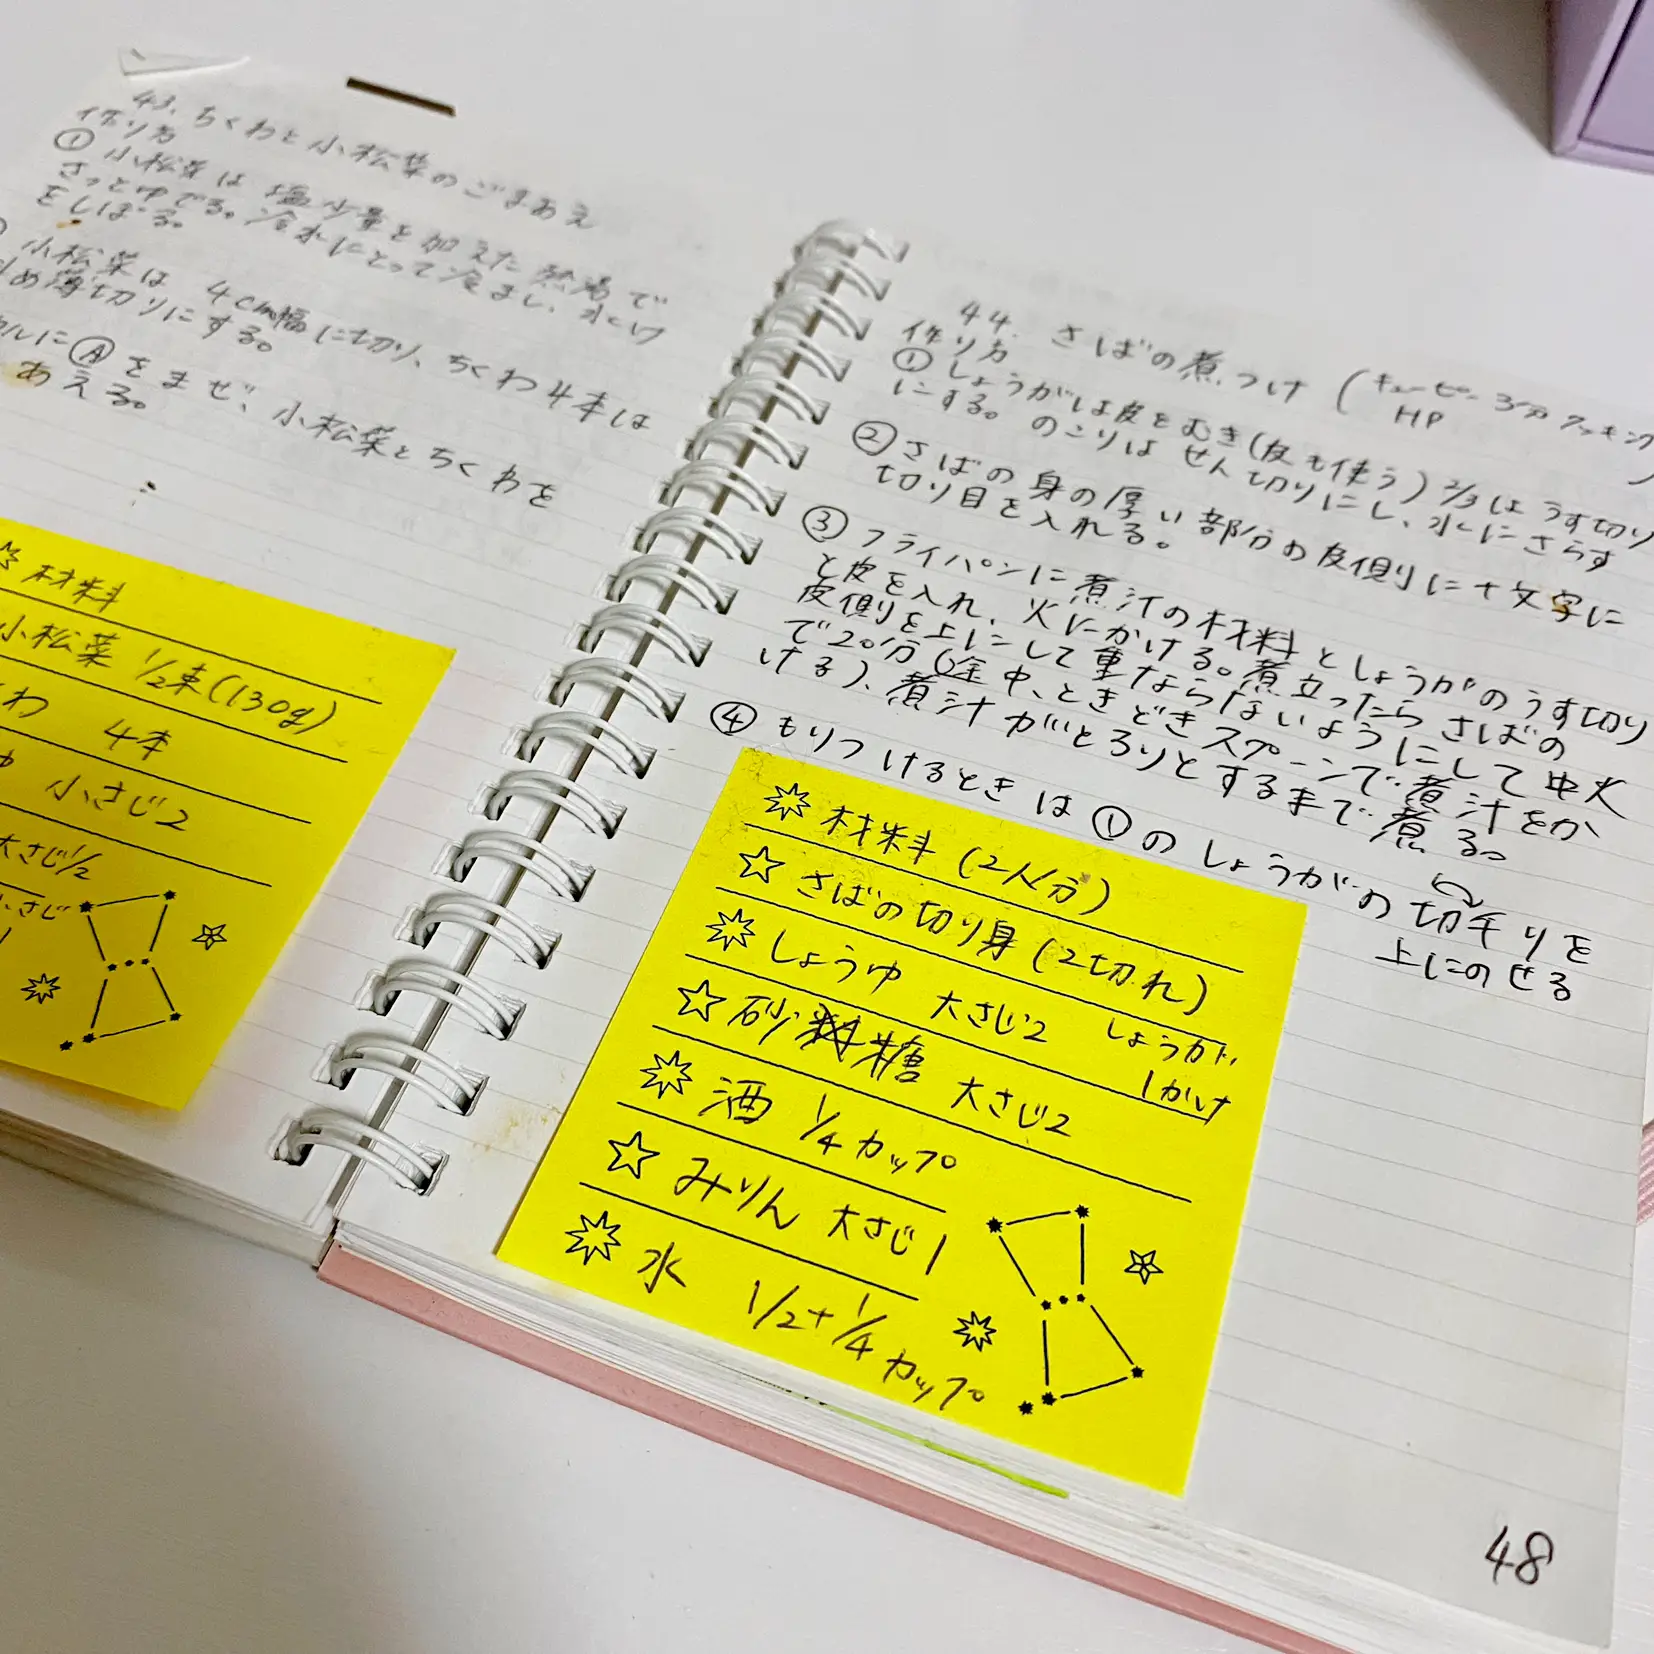 43. ちくわと小松菜のごまあえ
作り方
① 小松菜は塩少量を加えた熱湯で
さっとゆでる。冷水にとって冷まし、水け
をしぼる。
小松菜は 4cm幅に切り、ちくわ4本は
め薄切りにする。
ルにⒶをまぜ、小松菜とちくわを
あえる。
材料
小松菜 1/2束(130g)
わ 4本
小さじ2
大さじ1/2
小さじ
44. さばの煮つけ (キューピー3分クッキング
HP)
作り方
① しょうがは皮をむき(皮も使う) 2/3はうす切り
にする。のこりはせん切りにし、水にさらす
② さばの身の厚い部分の皮側に十文字に
切り目を入れる。
③ フライパンに煮汁の材料としょうがのうす切り
と皮を入れ、火にかける。煮立ったらさばの
皮側を上にして重ならないようにして中火
で20分(途中、ときどきスプーンで煮汁をか
ける)、煮汁がとろりとするまで煮る。
④ もりつけるときは①のしょうがの切千りを
上にのせる
材料 (2人分)
さばの切り身 (2切れ)
しょうゆ 大さじ2 しょうが
1かけ
砂糖 大さじ2
酒 1/4カップ
みりん 大さじ1
水 1/2+1/4カップ
48